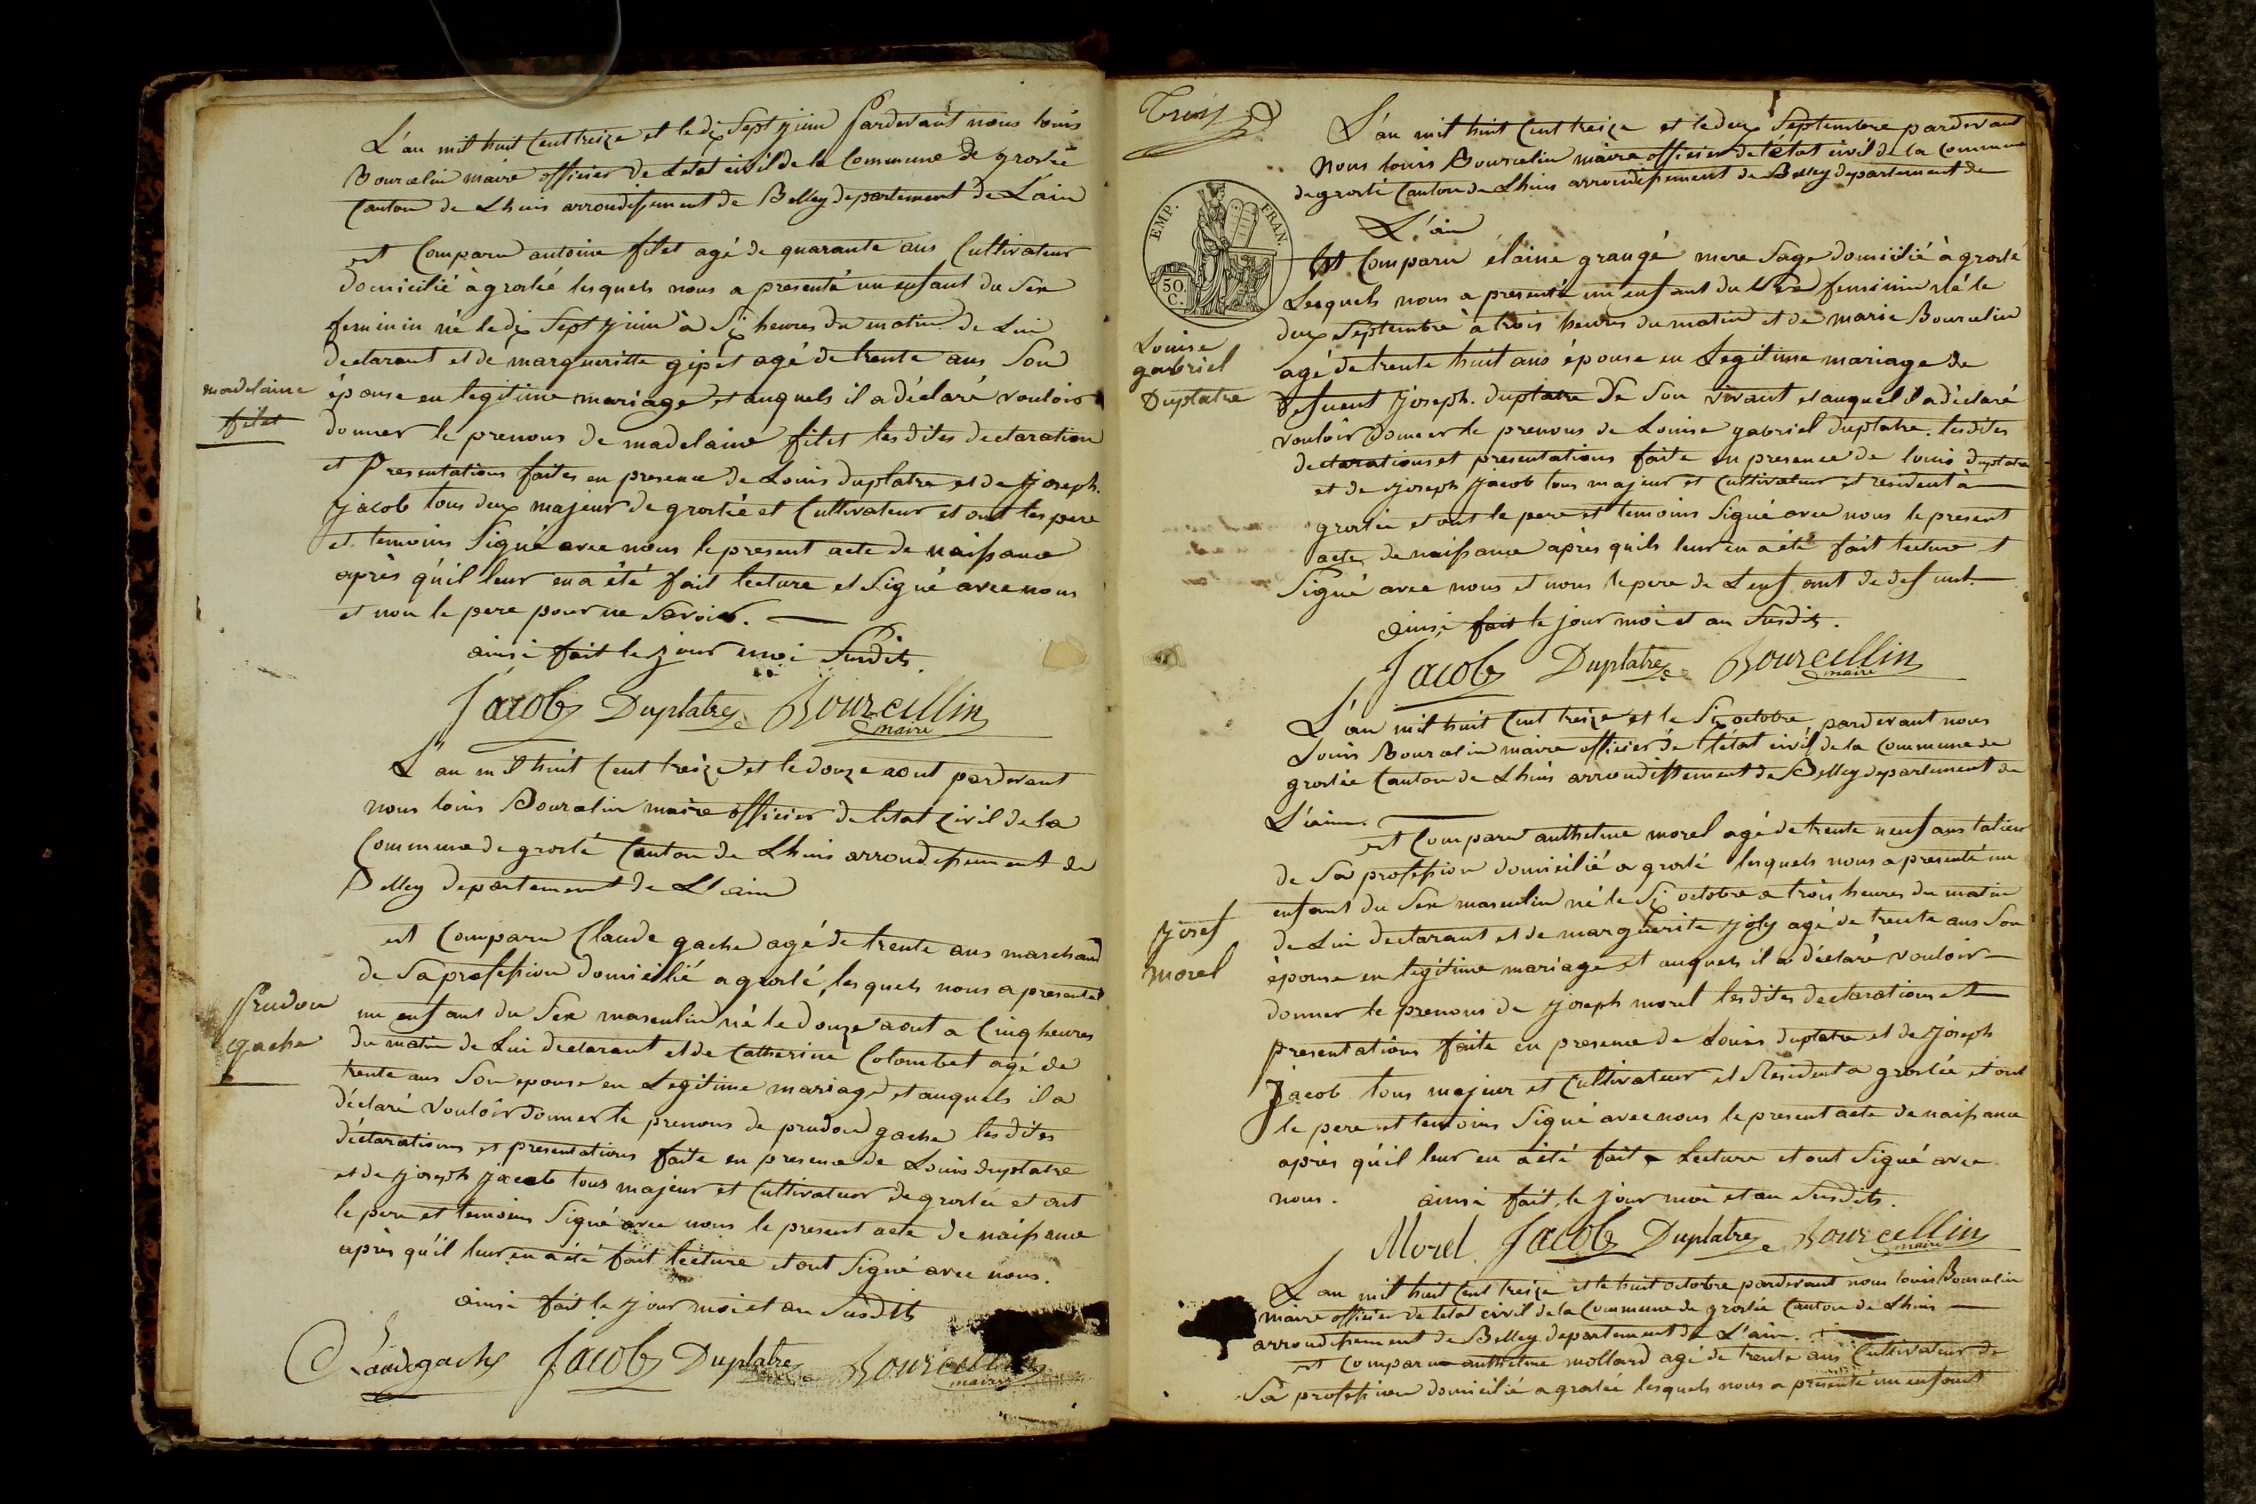 L'an mil huit Cent treize et le dix Sept juin Pardevant nous louis
Bourcelin maire officier de Letat civil de la Commune de groslée
Canton de Lhuis arrondissement de Belley departement de L'ain
est Comparu antoine filet agé de quarante ans Cultivateur
domicilié à groslée lesquels nous a presenté un enfant du Sex
feminin né le dix Sept juin à Six heures du matin de Lui
declarant et de margueritte gipet agé de trente ans Son
épouse en legitime mariage et auquels il a déclaré vouloir
donner le prenous de madelaine filet lesdites declaration
et Presentations faites en presence de Louis duplatre et de joseph
jacob tous deux majeur de groslée et Cultivateur et ont les pere
et temoins Signé avec nous le present acte de naissance
après qu'il leur en a été fait lecture et Signé avec nous
et non le pere pour ne Savoir.
ainsi fait le jour moi Susdits.
Jacob Duplatre Bourcellin
maire
madelaine
filet
L'an mil huit Cent treize et le douze aout pardevant
nous louis Bourcelin maire officier de letat Civil de la
Commune de groslé Canton de Lhuis arrondissement de
Belley departement de L'ain
est Comparu Claude gache agé de trente ans marchand
de Sa profession domicilié a groslé, lesquels nous a presenté
un enfant du Sex masculin né le douze aout a Cinq heures
du matin de Lui declarant et de Catherine Colombet agé de
trente ans Son epouse en Legitime mariage et auquels il a
déclaré Vouloir donner le prenous de prudon gache lesdites
déclarations et presentations faite en presence de Louis duplatre
et de joseph jacob tous majeur et Cultivateur de groslée et ont
le pere et temoins Signé avec nous le present acte de naissance
après qu'il leur en a été fait lecture et ont Signé avec nous.
ainsi fait le jour moi et an Susdits
Claude gache Jacob Duplatre Bourcellin
maire
Prudon
gache
Trois
EMP. FRAN.
50
C.
L'an mil huit Cent treize et le deux Septembre pardevant
Nous louis Bourcelin maire officier de l'état civil de la Commune
de groslé Canton de Lhuis arrondissement de Belley departement de
L'ain
Est Comparu élaine grangé mere Sage domicilié à groslé
Lesquels nous a presenté un enfant du Sex feminin né le
deux Septembre à trois heures du matin et de marie Bourcelin
agé de trente huit ans épouse en Legitime mariage de
defuent joseph. duplatre De Son vivant et auquel il a déclaré
vouloir donner le prenous de Louise gabriel duplatre. lesdites
declarations et presentations faite en presence de louis duplatre
et de joseph jacob tous majeur et Cultivateur et resident à
groslée et ont le pere et temoins Signé avec nous le present
acte, de naissance après quils leur en a été fait lecture et
Signé avec nous et nous le pere de L'enfant de defunt.
ainsi fait le jour moi et an Susdits.
Jacob Duplatre Bourcellin
maire
Louise
gabriel
Duplatre
L'an mil huit Cent treize et le Six octobre, pardevant nous
Louis Bourcelin maire officier de l'état civil de la Commune de
groslée Canton de Lhuis arrondissement de Belley departement de
L'ain.
est Comparu anthelme morel agé de trente neuf ans
de Sa profession domicilié a groslé lesquels nous a presenté un
enfant du Sex masculin né le Six octobre a trois heures du matin
de Lui declarant et de marguerite joly agé de trente ans Son
épouse en legitime mariage et auquels il a déclaré vouloir
donner le prenous de joseph morel lesdites declarations et
presentations faite en presence de Louis duplatre et de joseph
Jacob tous majeur et Cultivateur et Resident a groslée et ont
le pere et temoins Signé avec nous le present acte de naissance
après qu'il leur en a été faite Lecture et ont Signé avec
nous. ainsi fait, le jour moi et an Susdits.
Morel Jacob Duplatre Bourcellin
maire
josef
morel
L'an mil huit Cent treize et le huit octobre pardevant nous louis Bourcelin
maire officier de letat civil de la Commune de groslée Canton de Lhuis
arrondissement de Belley departement de L'ain.
est Comparu anthelme mollard agé de trente ans Cultivateur de
Sa profession domicilié a groslée lesquels nous a presenté un enfant